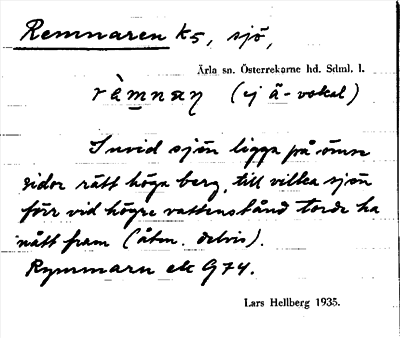 Remnaren K5, sjö,
Ärla sn. Österrekarne hd. Sdml. l.
ràmnaŋ (ej ä-vokal)
Invid sjön ligga på ömse
sidor rätt höga berg, till vilka sjön
förr vid högre vattenstånd torde ha
nått fram (åtm. delvis).
Rymmarn ek G74.
Lars Hellberg 1935.